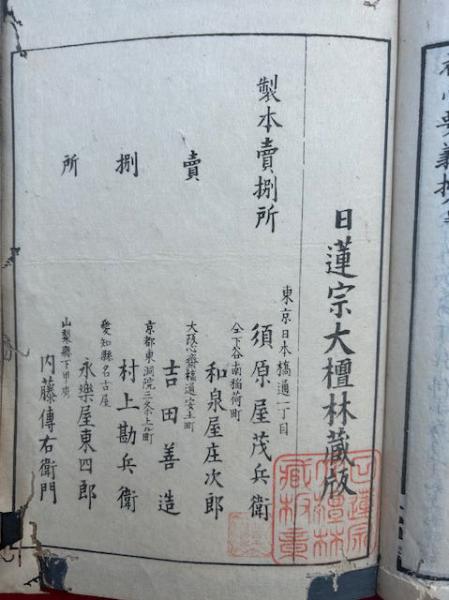 日蓮宗大檀林藏版
製本賣捌所
東京日本橋通一丁目
須原屋茂兵衛
仝下谷南稲荷町
和泉屋庄次郎
賣
大阪心齋橋通安土町
吉田善造
捌
京都東洞院三条上ル町
村上勘兵衛
愛知縣名古屋
永樂屋東四郎
所
山梨縣下甲府
内藤傳右衛門
日蓮宗
大檀林
藏板章